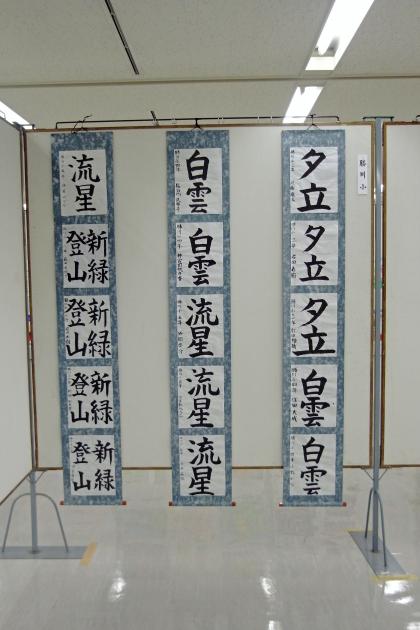 勝川小
夕立
夕立
夕立
白雲
白雲
白雲
白雲
流星
流星
流星
流星
新緑
登山
新緑
登山
新緑
登山
新緑
登山